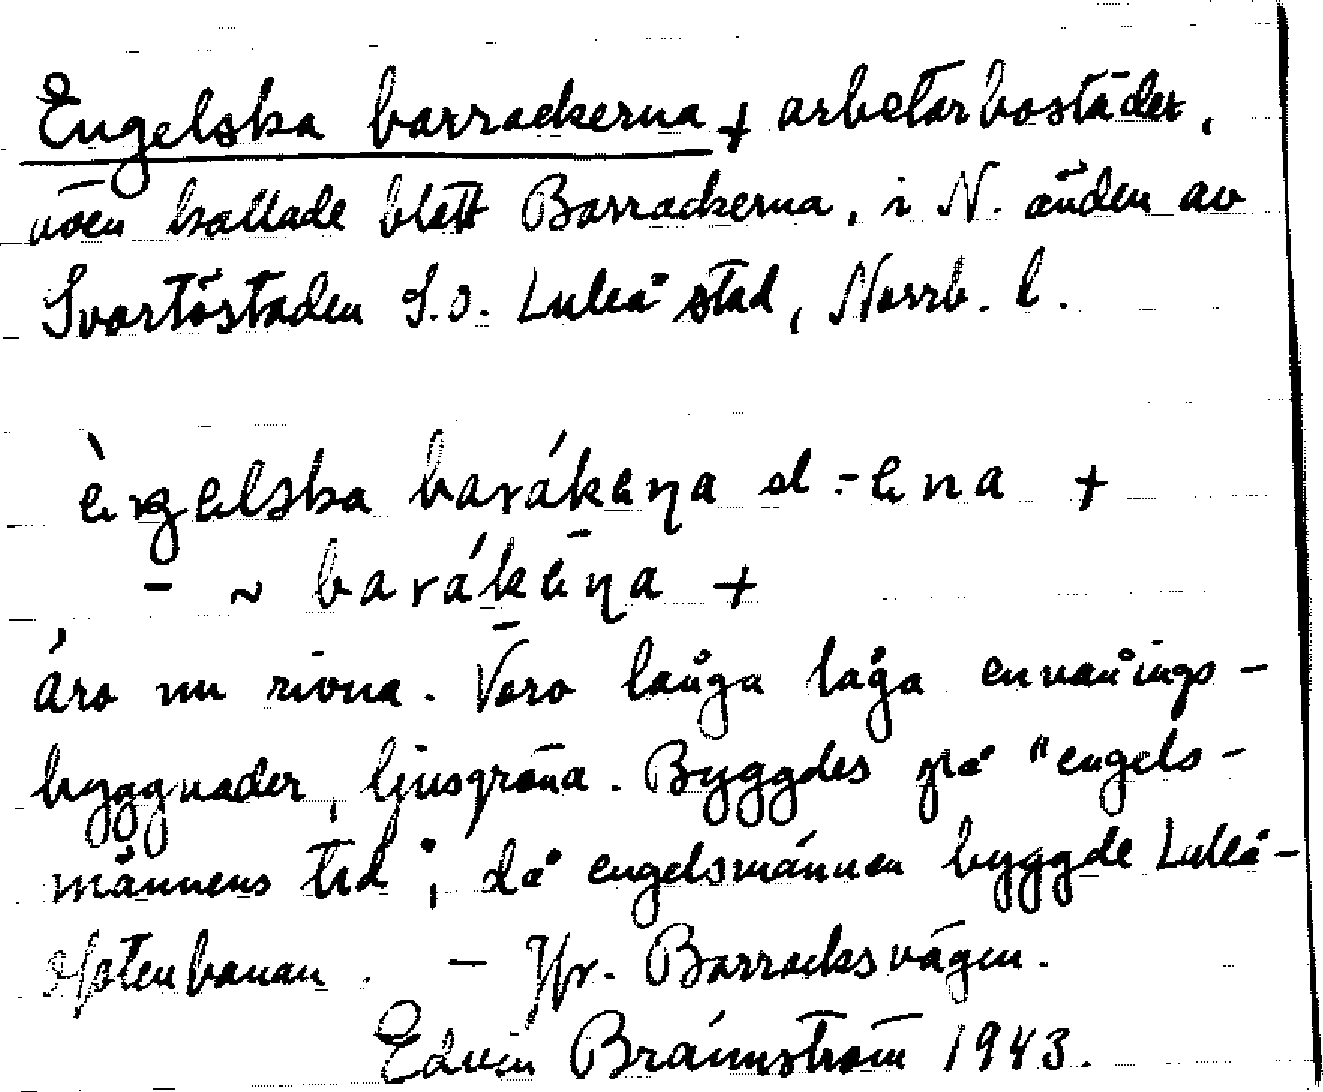 Engelska barrackerna + arbetarbostäder,
även kallade blott Barrackerna, i N. änden av
Svartöstaden S.O. Luleå stad, Norrb. l.
èŋelska barákeṇa el. -ena +
- ~ barákēṇa +
äro nu rivna. Voro långa låga envånings-
byggnader, ljusgröna. Byggdes på "engels-
männens tid", då engelsmännen byggde Luleå-
Ofotenbanan. - Jfr. Barracksvägen.
Edvin Brännström 1943.